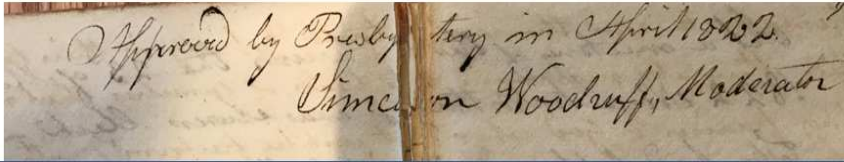 Approved by Presbytery in April 1822.
Simeon Woodruff, Moderator